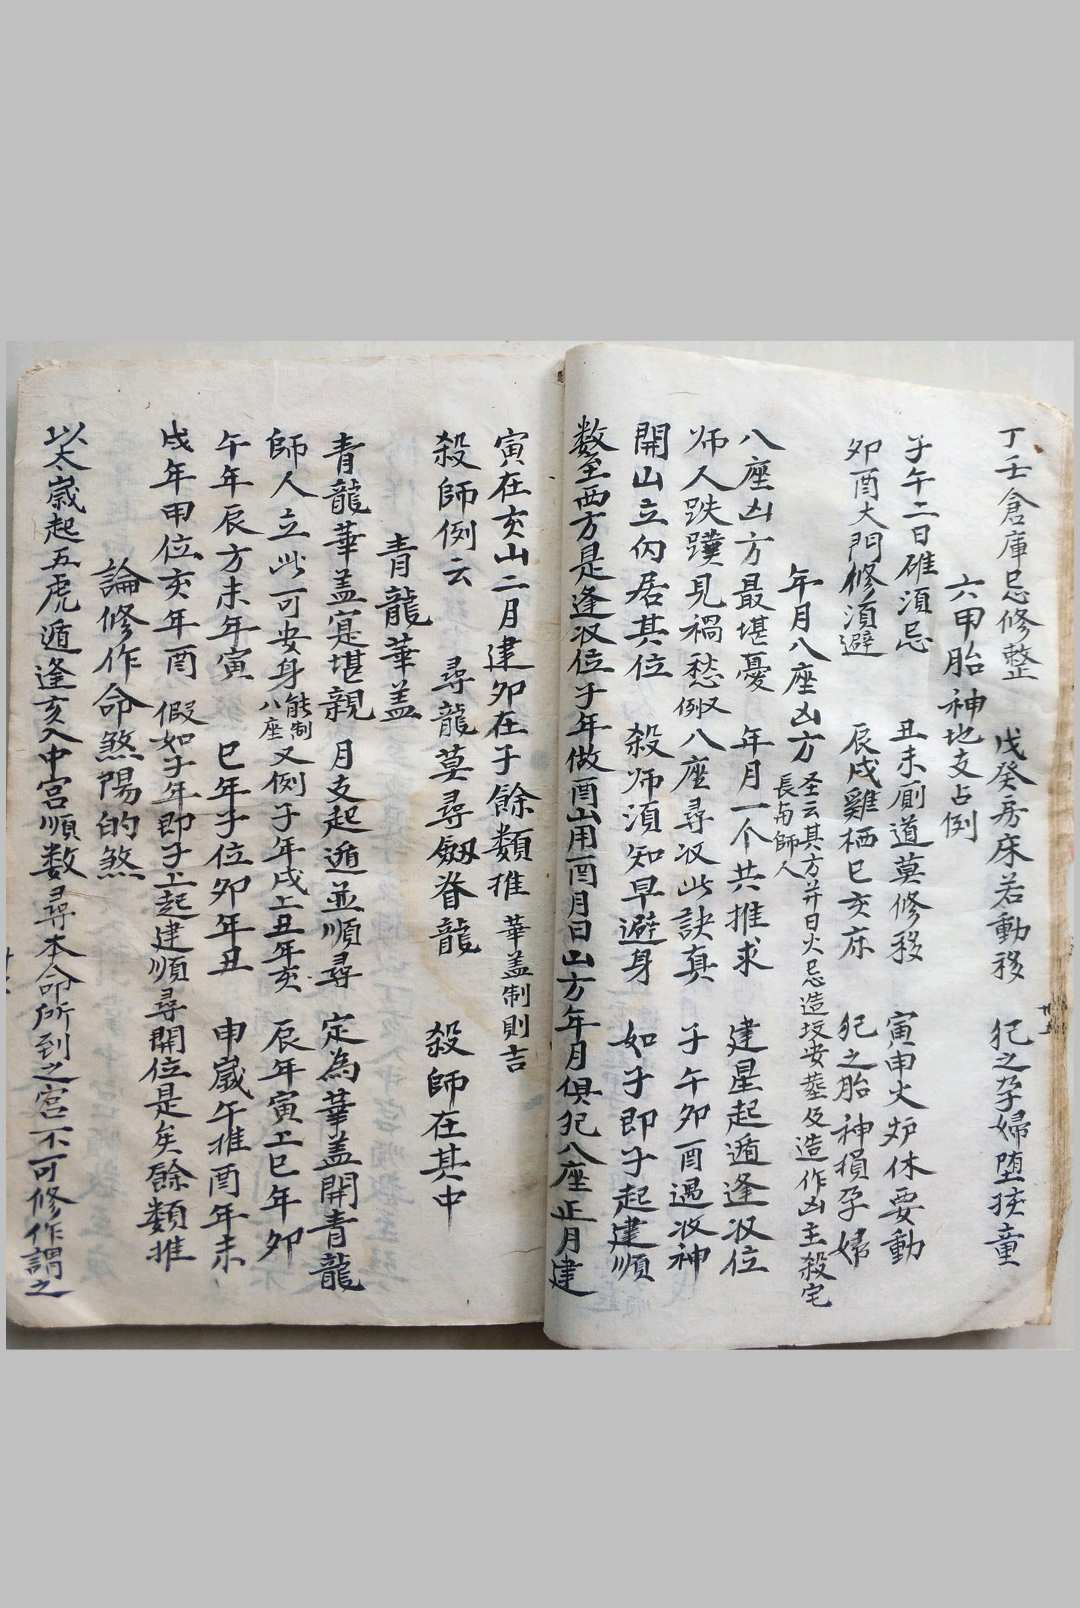 丁壬倉庫忌修整　戊癸房床若動移　犯之孕婦堕孩童
六甲胎神地支占例
子午二日碓須忌　丑未廁道莫修移　寅申火炉休要動
卯酉大門修須避　辰戌雞栖巳亥床　犯之胎神損孕婦
年月八座凶方
圣云其方并日火忌造坟安葬及造作凶主殺宅
長与師人
八座凶方最堪憂　年月一个共推求　建星起遁逢収位
师人跌蹼見禍愁　又例　八座尋収此訣真　子午卯酉遇收神
開山立向居其位　殺师須知早避身　如子即子起建順
数至西方是逢収位子年做酉山用酉月日山方年月俱犯八座正月建
廿五
寅在亥山二月建卯在子餘類推　華盖制則吉
殺師例云　尋龍莫尋劔脊龍　殺師在其中
青龍華盖
青龍華盖寔堪親　月支起遁並順尋　定為華盖開青龍
師人立此可安身　能制八座　又例子年戌上丑年亥　辰年寅上巳年卯
午年辰方未年寅　巳年子位卯年丑　申歲午推酉年未
戌年申位亥年酉　假如子年即子上起建順尋開位是矣餘類推
論修作命煞陽的煞
以太歲起五虎遁逢亥入中宮順数尋本命所到之宮不可修作謂之